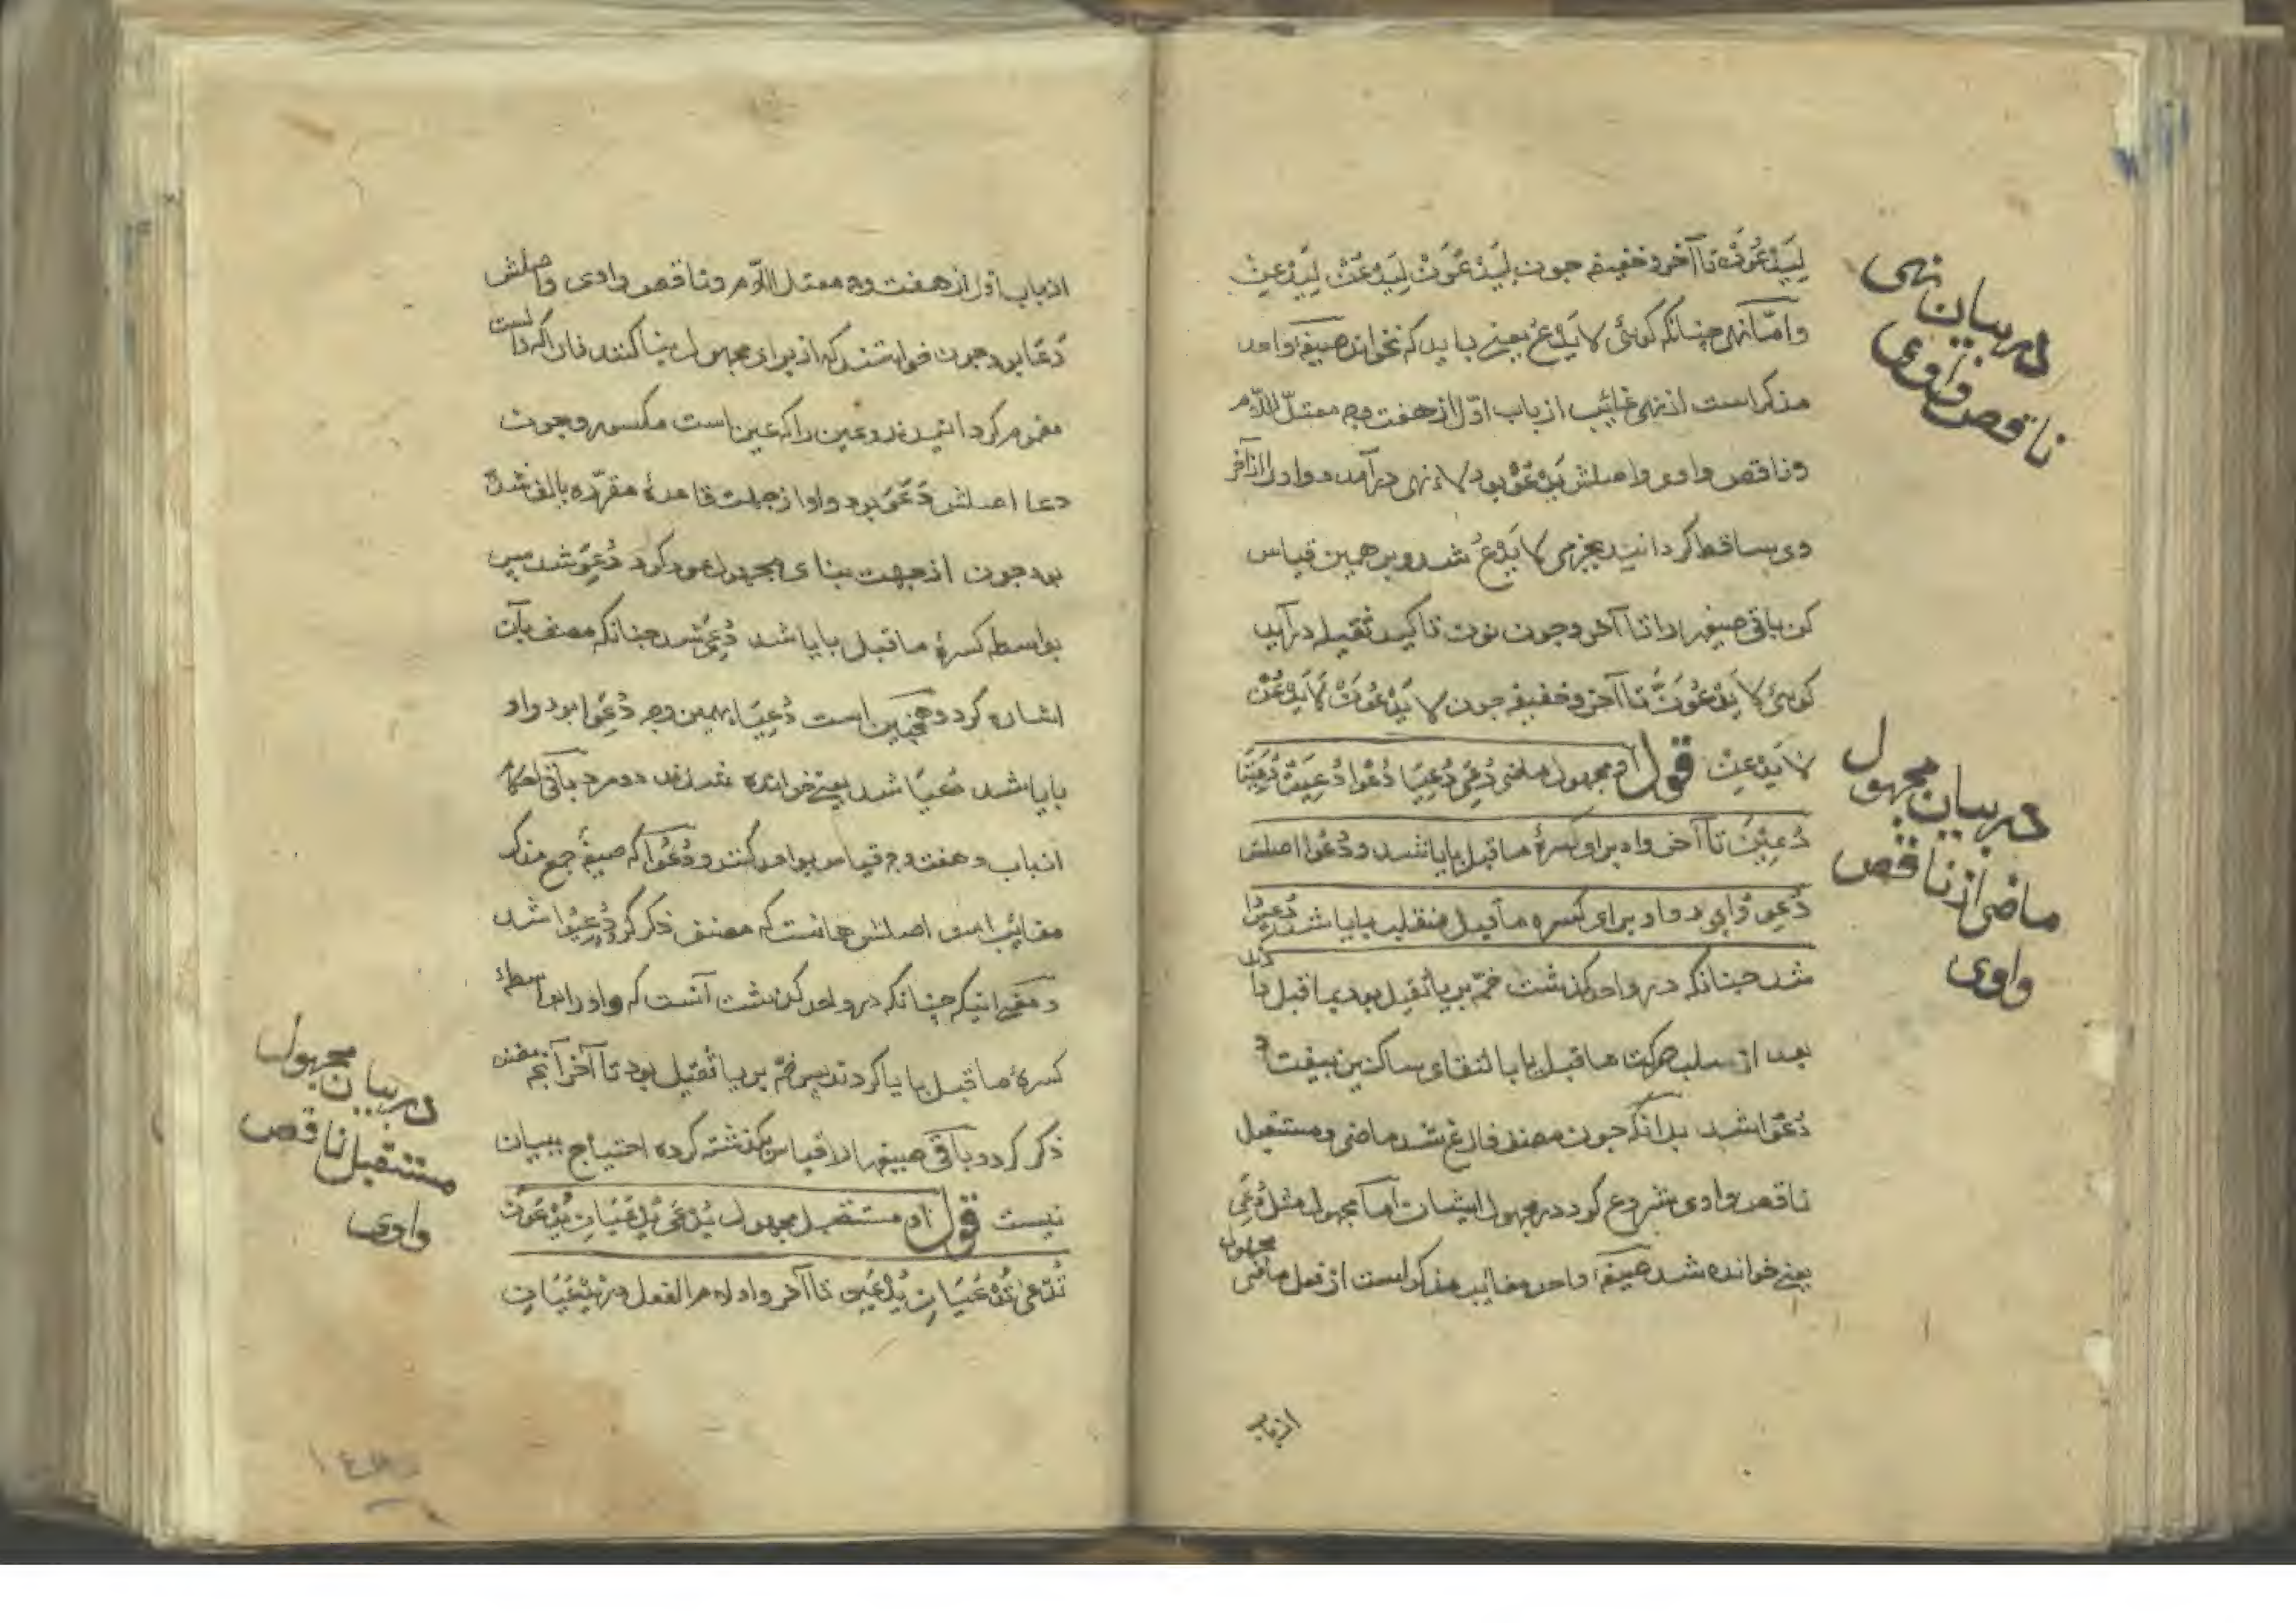 لِیَدْعُوَنَّ تا آخر و خفیفه چون لِیَدْعُوَنْ لِیَدْعُنْ لِیَدْعِنْ
و امّا نهی چنانکه کوئی لا یَدْعُ یعنی باید که نخواند صیغهٔ واحد
مذکر است از نهی غائب از باب اوّل از هفت وجه معتلّ اللّام
و ناقص واوی و اصلش یَدْعُوْ بود لاء نهی درآمد و واو را از آخر
وی ساقط کردانید بجزمی لا یَدْعُ شد و بر همین قیاس
کن باقی صیغه را تا آخر و چون نون تاکید ثقیله درآید
کوئی لا یَدْعُوَنَّ تا آخر و خفیفه چون لا یَدْعُوَنْ لا یَدْعُنْ
لا یَدْعِنْ قوله مجهول ماضی دُعِیَ دُعِیَا دُعُوْا دُعِیَتْ دُعِیَتَا
دُعِیْنَ تا آخر واو برای کسرهٔ ماقبل بایا شد و دُعُوا اصلش
دُعِوُوْا بود واو برای کسره ماقبل منقلب بایا شد دُعِیُوْا
شد چنانکه در واحد کذشت ضمّه بر یا ثقیل بود بماقبل دادند
بعد از سلب حرکت ماقبل یا بالتقای ساکنین بیفتاد
دُعُوْا شد بدانکه چون مصنف فارغ شد ماضی و مستقبل
ناقص واوی شروع کرد در مجهول ایشان امّا مجهول مثل دُعِیَ
یعنی خوانده شد صیغهٔ واحد مغایب مذکر است از فعل ماضی مجهول
از باب
در بیان نهی
ناقص واوی
در بیان مجهول
ماضی از ناقص
واوی
از باب اوّل از هفت وجه معتل اللّام و ناقص واوی و اصلش
دَعَا بود چون خواستند که از برای مجهول بنا کنند فا را که دالست
مضموم کردانیدند و عین را که عین است مکسور و چون
دعا اصلش دَعَوَ بود واو از جهت قاعدهٔ مقرّره بالف شده
بود چون از جهت بنای مجهول عود کرد دُعِوَ شد پس
بواسطه کسرهٔ ماقبل بایا شد دُعِیَ شد چنانکه مصنف بآن
اشاره کرد و همچنین است دُعِیَا بهمین وجه دُعِوَا بود واو
بایا شد دُعِیَا شد یعنی خوانده شدند دو مرد باقی احکام
از باب و هفت وجه قیاس بواحد کنند و دُعُوْا که صیغهٔ جمع مذکر
مغایب است اصلش همانست که مصنف ذکر کرد دُعِیُوْا شد
و معنی اینکه چنانکه در واحد کذشت آنست که واو را بواسطهٔ
کسرهٔ ماقبل بایا کردند پس ضمّه بر یا ثقیل بود تا آخر آنچه مصنف
ذکر کرد و باقی صیغه را قیاس بکذشته کرده احتیاج ببیان
نیست قوله مستقبل مجهول یُدْعَی یُدْعَیَانِ یُدْعَوْنَ
تُدْعَی تُدْعَیَانِ یُدْعَیْنَ تا آخر واو لام الفعل در یُدْعَیَانِ
در بیان مجهول
مستقبل ناقص
واوی